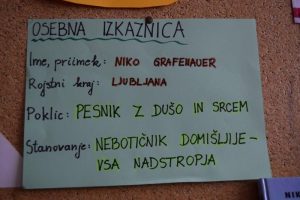 OSEBNA IZKAZNICA
Ime, priimek: NIKO GRAFENAUER
Rojstni kraj: LJUBLJANA
Poklic: PESNIK Z DUŠO IN SRCEM
Stanovanje: NEBOTIČNIK DOMIŠLJIJE -
VSA NADSTROPJA